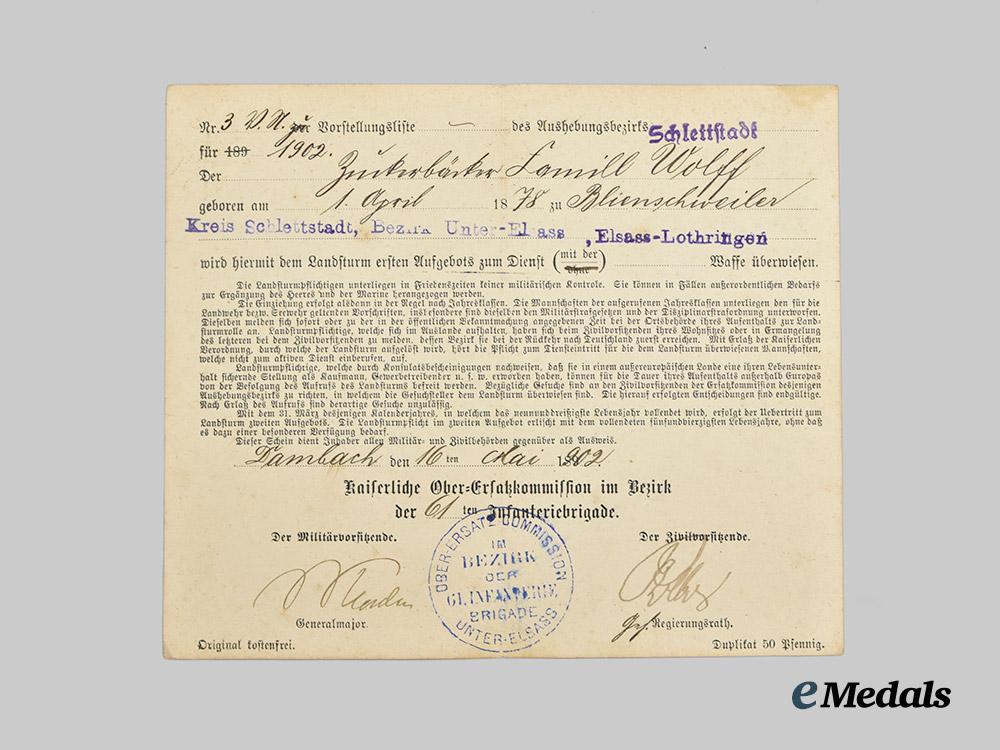 Nr. 3 V. A. zur Vorstellungsliste — des Aushebungsbezirks Schlettstadt
für 189 1902.
Der Zuckerbäcker Camill Wolff
geboren am 1. April 1878 zu Blienschweiler
Kreis Schlettstadt, Bezirk Unter-Elsass, Elsass-Lothringen
wird hiermit dem Landsturm ersten Aufgebots zum Dienst (mit der / ohne) Waffe überwiesen.
Die Landsturmpflichtigen unterliegen in Friedenszeiten keiner militärischen Kontrole. Sie können in Fällen außerordentlichen Bedarfs
zur Ergänzung des Heeres und der Marine herangezogen werden.
Die Einziehung erfolgt alsdann in der Regel nach Jahresklassen. Die Mannschaften der aufgerufenen Jahresklassen unterliegen den für die
Landwehr bezw. Seewehr geltenden Vorschriften, insbesondere sind dieselben den Militärstrafgesetzen und der Disziplinarstrafordnung unterworfen.
Dieselben melden sich sofort oder zu der in der öffentlichen Bekanntmachung angegebenen Zeit bei der Ortsbehörde ihres Aufenthalts zur Land-
sturmrolle an. Landsturmpflichtige, welche sich im Auslande aufhalten, haben sich beim Zivilvorsitzenden ihres Wohnsitzes oder in Ermangelung
des letzteren bei dem Zivilvorsitzenden zu melden, dessen Bezirk sie bei der Rückkehr nach Deutschland zuerst erreichen. Mit Erlaß der Kaiserlichen
Verordnung, durch welche der Landsturm aufgelöst wird, hört die Pflicht zum Diensteintritt für die dem Landsturm überwiesenen Mannschaften,
welche nicht zum aktiven Dienst einberufen, auf.
Landsturmpflichtige, welche durch Konsulatsbescheinigungen nachweisen, daß sie in einem außereuropäischen Lande eine ihren Lebensunter-
halt sichernde Stellung als Kaufmann, Gewerbetreibender u. s. w. erworben haben, können für die Dauer ihres Aufenthalts außerhalb Europas
von der Befolgung des Aufrufs des Landsturms befreit werden. Bezügliche Gesuche sind an den Zivilvorsitzenden der Ersatzkommission desjenigen
Aushebungsbezirks zu richten, in welchem die Gesuchsteller dem Landsturm überwiesen sind. Die hierauf erfolgten Entscheidungen sind endgültige.
Nach Erlaß des Aufrufs sind derartige Gesuche unzulässig.
Mit dem 31. März desjenigen Kalenderjahres, in welchem das neununddreißigste Lebensjahr vollendet wird, erfolgt der Uebertritt zum
Landsturm zweiten Aufgebots. Die Landsturmpflicht im zweiten Aufgebot erlischt mit dem vollendeten fünfundvierzigsten Lebensjahre, ohne daß
es dazu einer besonderen Verfügung bedarf.
Dieser Schein dient Inhaber allen Militär- und Zivilbehörden gegenüber als Ausweis.
Dambach den 16 ten Mai 1902.
Kaiserliche Ober-Ersatzkommission im Bezirk
der 61 ten Infanteriebrigade.
Der Militärvorsitzende. Der Zivilvorsitzende.
OBER-ERSATZ-COMMISSION
IM
BEZIRK
DER
61. INFANTERIE
BRIGADE
UNTER-ELSASS
Generalmajor. Geh. Regierungsrath.
Original kostenfrei. Duplikat 50 Pfennig.
eMedals